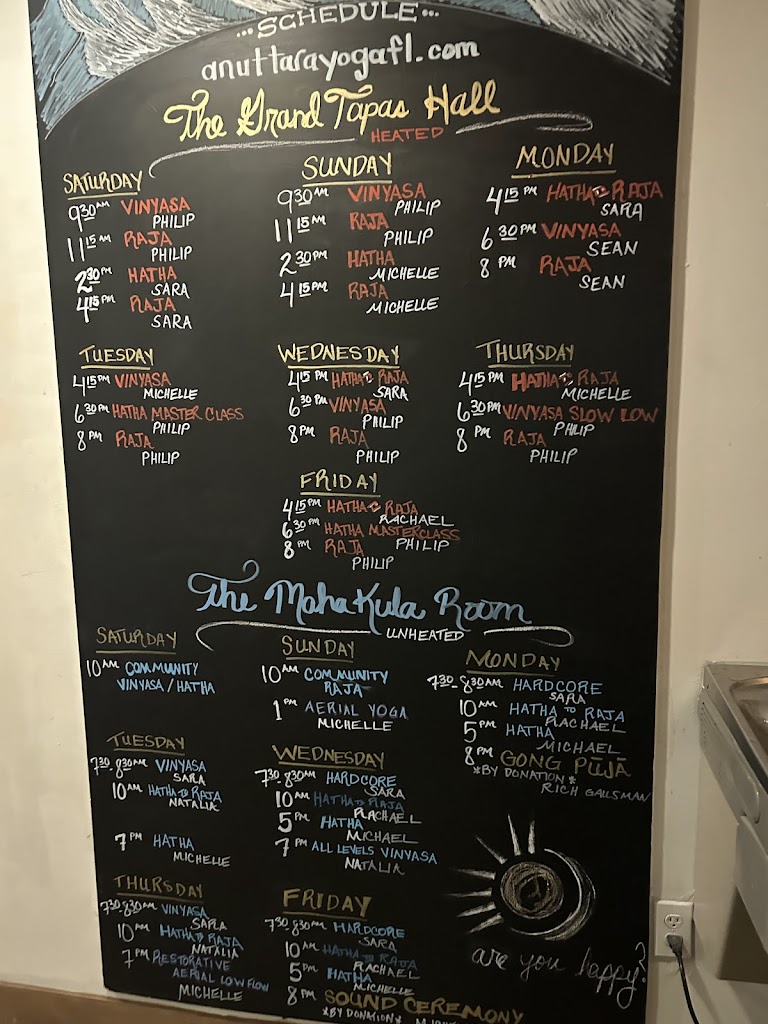 ...SCHEDULE...
anuttarayogafl.com
The Grand Tapas Hall
HEATED
SATURDAY
9:30 AM VINYASA
PHILIP
11:15 AM RAJA
PHILIP
2:30 PM HATHA
SARA
4:15 PM RAJA
SARA
SUNDAY
9:30 AM VINYASA
PHILIP
11:15 AM RAJA
PHILIP
2:30 PM HATHA
MICHELLE
4:15 PM RAJA
MICHELLE
MONDAY
4:15 PM HATHA TO RAJA
SARA
6:30 PM VINYASA
SEAN
8 PM RAJA
SEAN
TUESDAY
4:15 PM VINYASA
MICHELLE
6:30 PM HATHA MASTER CLASS
PHILIP
8 PM RAJA
PHILIP
WEDNESDAY
4:15 PM HATHA TO RAJA
SARA
6:30 PM VINYASA
PHILIP
8 PM RAJA
PHILIP
THURSDAY
4:15 PM HATHA TO RAJA
MICHELLE
6:30 PM VINYASA SLOW LOW
PHILIP
8 PM RAJA
PHILIP
FRIDAY
4:15 PM HATHA TO RAJA
RACHAEL
6:30 PM HATHA MASTERCLASS
PHILIP
8 PM RAJA
PHILIP
The MahaKula Room
UNHEATED
SATURDAY
10 AM COMMUNITY
VINYASA / HATHA
SUNDAY
10 AM COMMUNITY
RAJA
1 PM AERIAL YOGA
MICHELLE
MONDAY
7:30-8:30AM HARDCORE
SARA
10 AM HATHA TO RAJA
RACHAEL
5 PM HATHA
MICHAEL
8 PM GONG PŪJĀ
*BY DONATION*
RICH GAUSMAN
TUESDAY
7:30-8:30AM VINYASA
SARA
10 AM HATHA TO RAJA
NATALIA
7 PM HATHA
MICHELLE
WEDNESDAY
7:30-8:30AM HARDCORE
SARA
10 AM HATHA TO RAJA
RACHAEL
5 PM HATHA
MICHAEL
7 PM ALL LEVELS VINYASA
NATALIA
THURSDAY
7:30-8:30AM VINYASA
SARA
10 AM HATHA TO RAJA
NATALIA
7 PM RESTORATIVE
AERIAL LOW FLOW
MICHELLE
FRIDAY
7:30-8:30AM HARDCORE
SARA
10 AM HATHA TO RAJA
RACHAEL
5 PM HATHA
MICHELLE
8 PM SOUND CEREMONY
*BY DONATION*
are you happy?